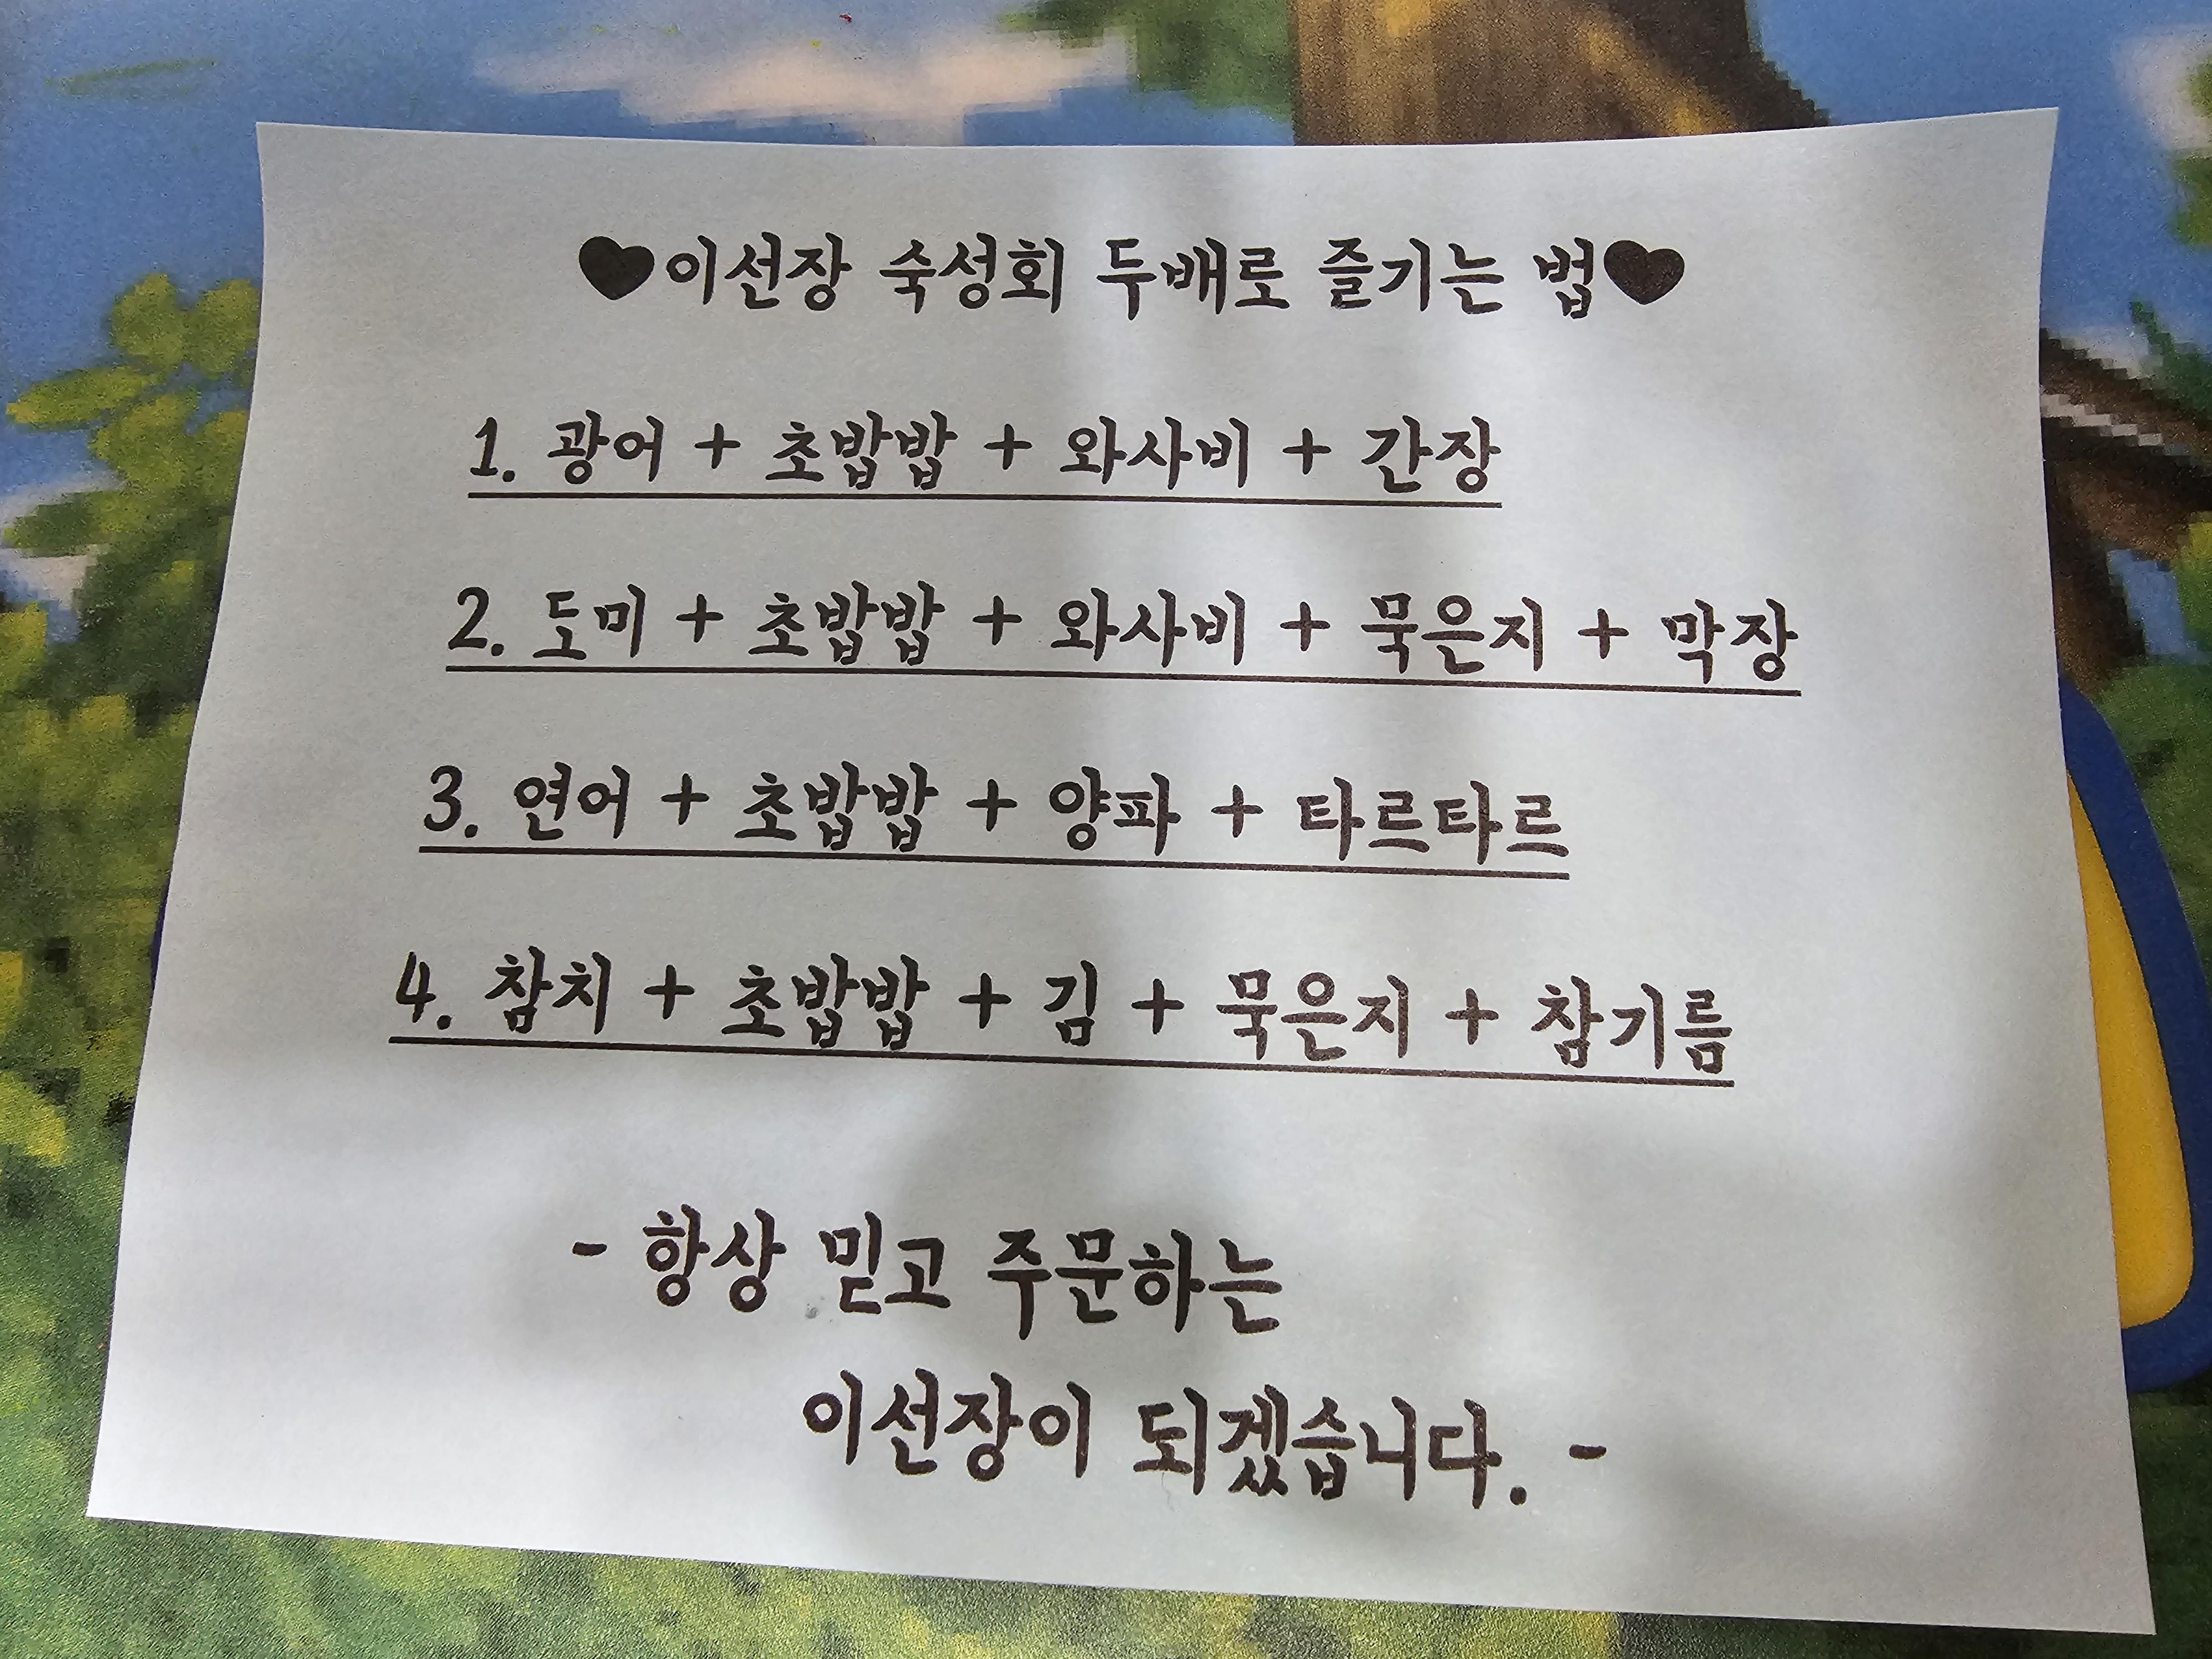 ♥이선장 숙성회 두배로 즐기는 법♥
1. 광어 + 초밥밥 + 와사비 + 간장
2. 도미 + 초밥밥 + 와사비 + 묵은지 + 막장
3. 연어 + 초밥밥 + 양파 + 타르타르
4. 참치 + 초밥밥 + 김 + 묵은지 + 참기름
- 항상 믿고 주문하는
이선장이 되겠습니다. -